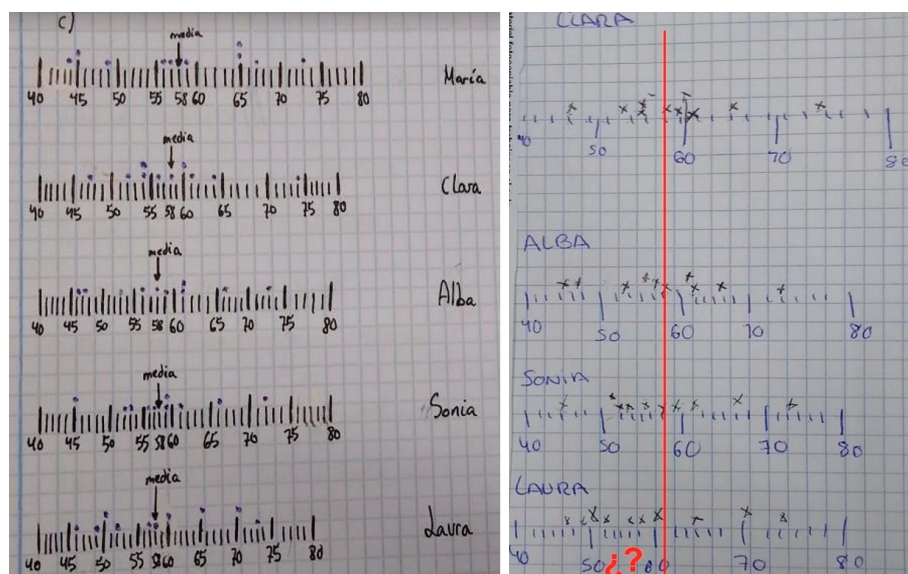 c)
media
40 45 50 55 58 60 65 70 75 80
María
media
40 45 50 55 58 60 65 70 75 80
Clara
media
40 45 50 55 58 60 65 70 75 80
Alba
media
40 45 50 55 58 60 65 70 75 80
Sonia
media
40 45 50 55 58 60 65 70 75 80
Laura
CLARA
40 50 60 70 80
ALBA
40 50 60 70 80
SONIA
40 50 60 70 80
LAURA
40 50 ¿?60 70 80